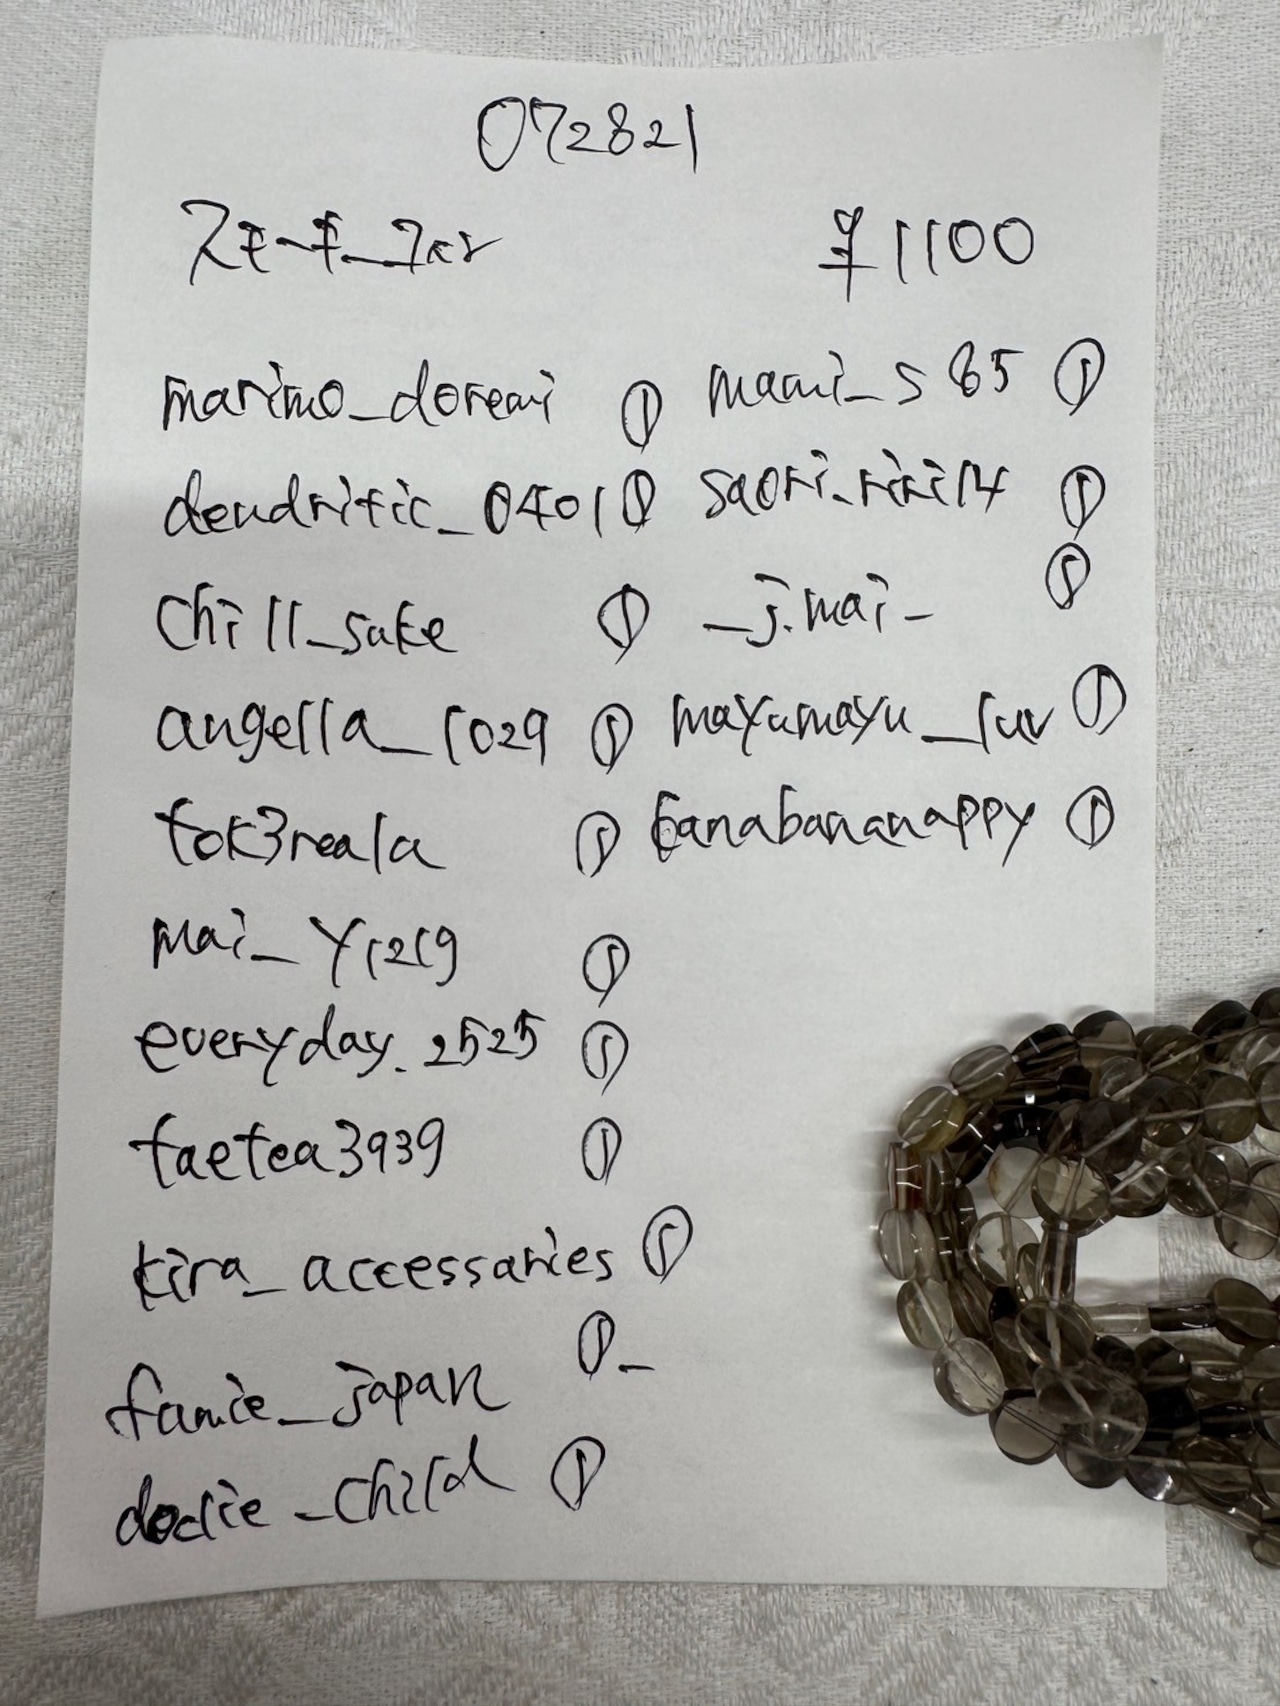 072821
スモーキークォーツ ¥1100
marimo_doremi ①
dendritic_0401 ①
chill_sake ①
angella_1029 ①
tok3reala ①
mai_y1219 ①
everyday.2525 ①
taetea3939 ①
kira_accessaries ①
famie_japan ①
dodie_child ①
mami_s85 ①
saori.riri14 ①
_j.mai_ ①
mayumayu_luv ①
①